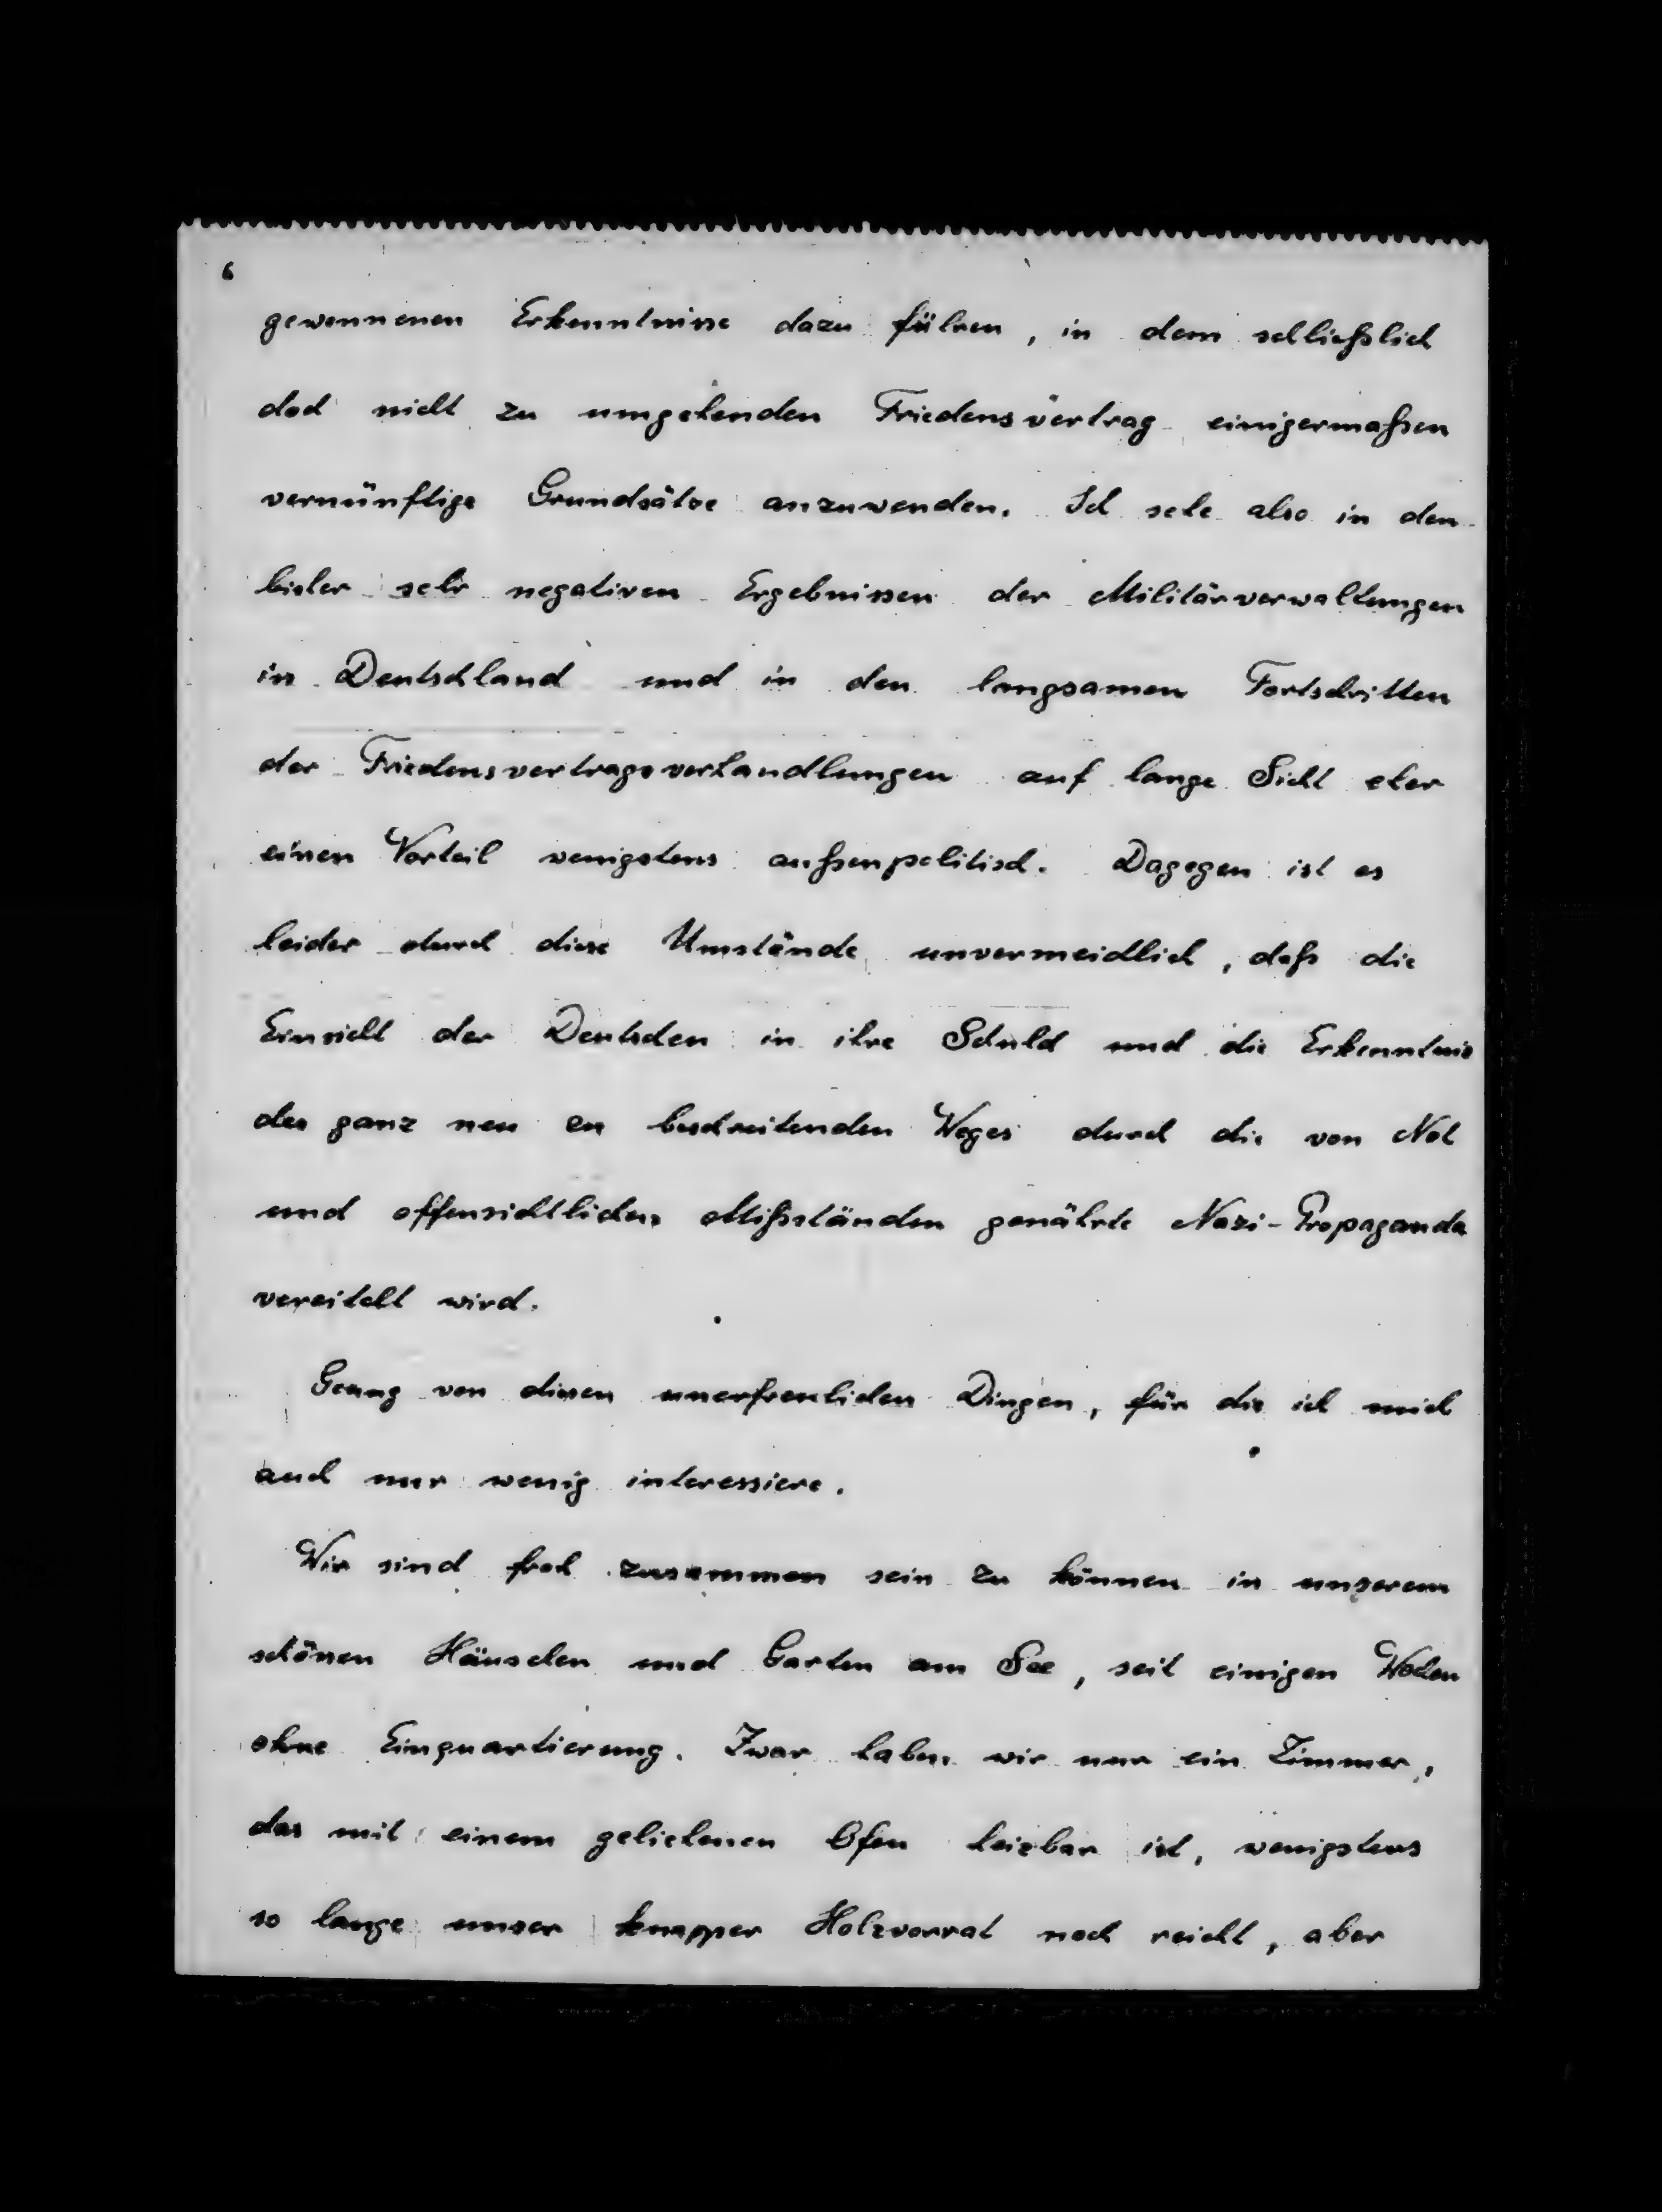 6
gewonnenen Erkenntnisse dazu führen, in dem schließlich
doch nicht zu umgehenden Friedensvertrag einigermaßen
vernünftige Grundsätze anzuwenden. Ich sehe also in den
bisher sehr negativen Ergebnissen der Militärverwaltungen
in Deutschland und in den langsamen Fortschritten
der Friedensvertragsverhandlungen auf lange Sicht eher
einen Vorteil wenigstens außenpolitisch. Dagegen ist es
leider durch diese Umstände unvermeidlich, daß die
Einsicht der Deutschen in ihre Schuld und die Erkenntnis
des ganz neu zu beschreitenden Weges durch die von Not
und offensichtlichen Mißständen genährte Nazi-Propaganda
vereitelt wird.
Genug von diesen unerfreulichen Dingen, für die ich mich
auch nur wenig interessiere.
Wir sind froh zusammen sein zu können in unserem
schönen Häuschen und Garten am See, seit einigen Wochen
ohne Einquartierung. Zwar haben wir nur ein Zimmer,
das mit einem geliehenen Ofen heizbar ist, wenigstens
so lange unser knapper Holzvorrat noch reicht, aber